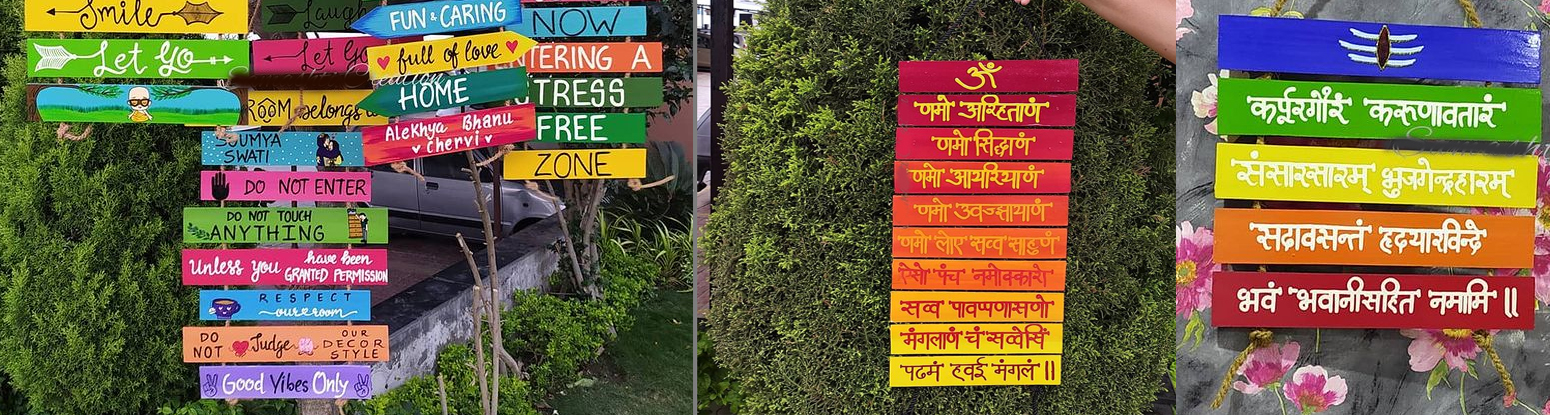 Smile
Let Go
Laugh
Let Go
Room belongs
SOUMYA
SWATI
DO NOT ENTER
DO NOT TOUCH
ANYTHING
Unless you have been
GRANTED PERMISSION
RESPECT
our room
DO NOT Judge OUR DECOR STYLE
Good Vibes Only
FUN & CARING
full of love
HOME
Alekhya Bhanu
Chervi
NOW
TERING A
TRESS
FREE
ZONE
ॐ
णमो अरिहंताणं
णमो सिद्धाणं
णमो आयरियाणं
णमो उवज्झायाणं
णमो लोए सव्व साहूणं
ऐसो पंच णमोक्कारो
सव्व पावप्पणासणो
मंगलाणं च सव्वेसिं
पढमं हवई मंगलं ||
कर्पूरगौरं करुणावतारं
संसारसारम् भुजगेन्द्रहारम्
सदावसन्तं हृदयारविन्दे
भवं भवानीसहित नमामि ||